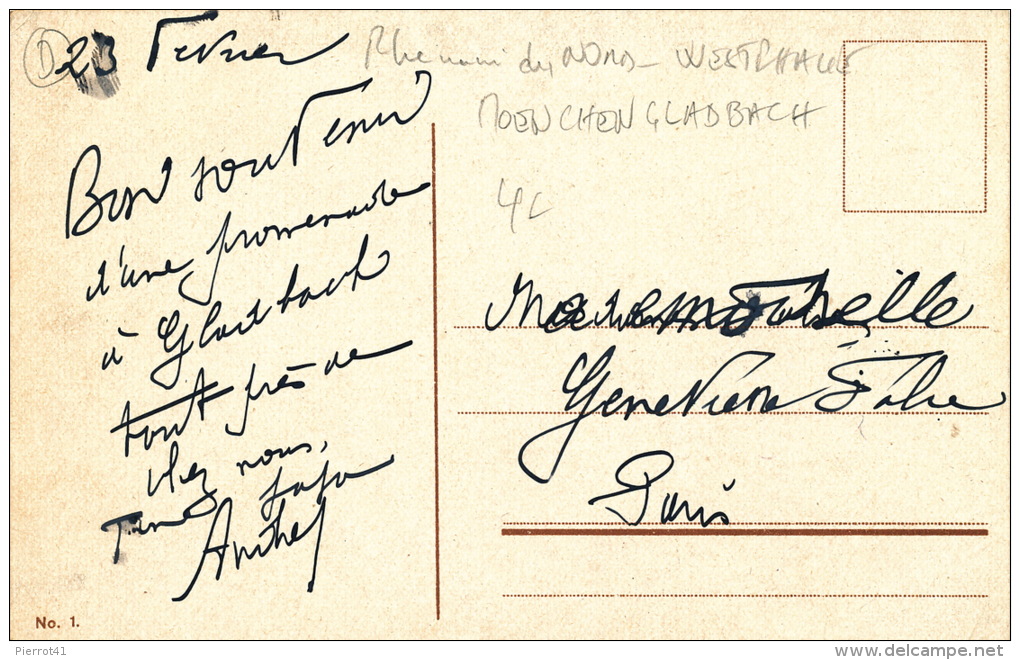 D
23 Fevrier
Rhenani du NORD - WESTPHALIE
MOENCHENGLADBACH
4c
Bon souvenir
d'une promenade
à Gladbach
tout près de
chez nous,
Ton papa
Mademoiselle
Geneviève Fabre
Paris
No. 1.
Pierrot41
www.delcampe.net